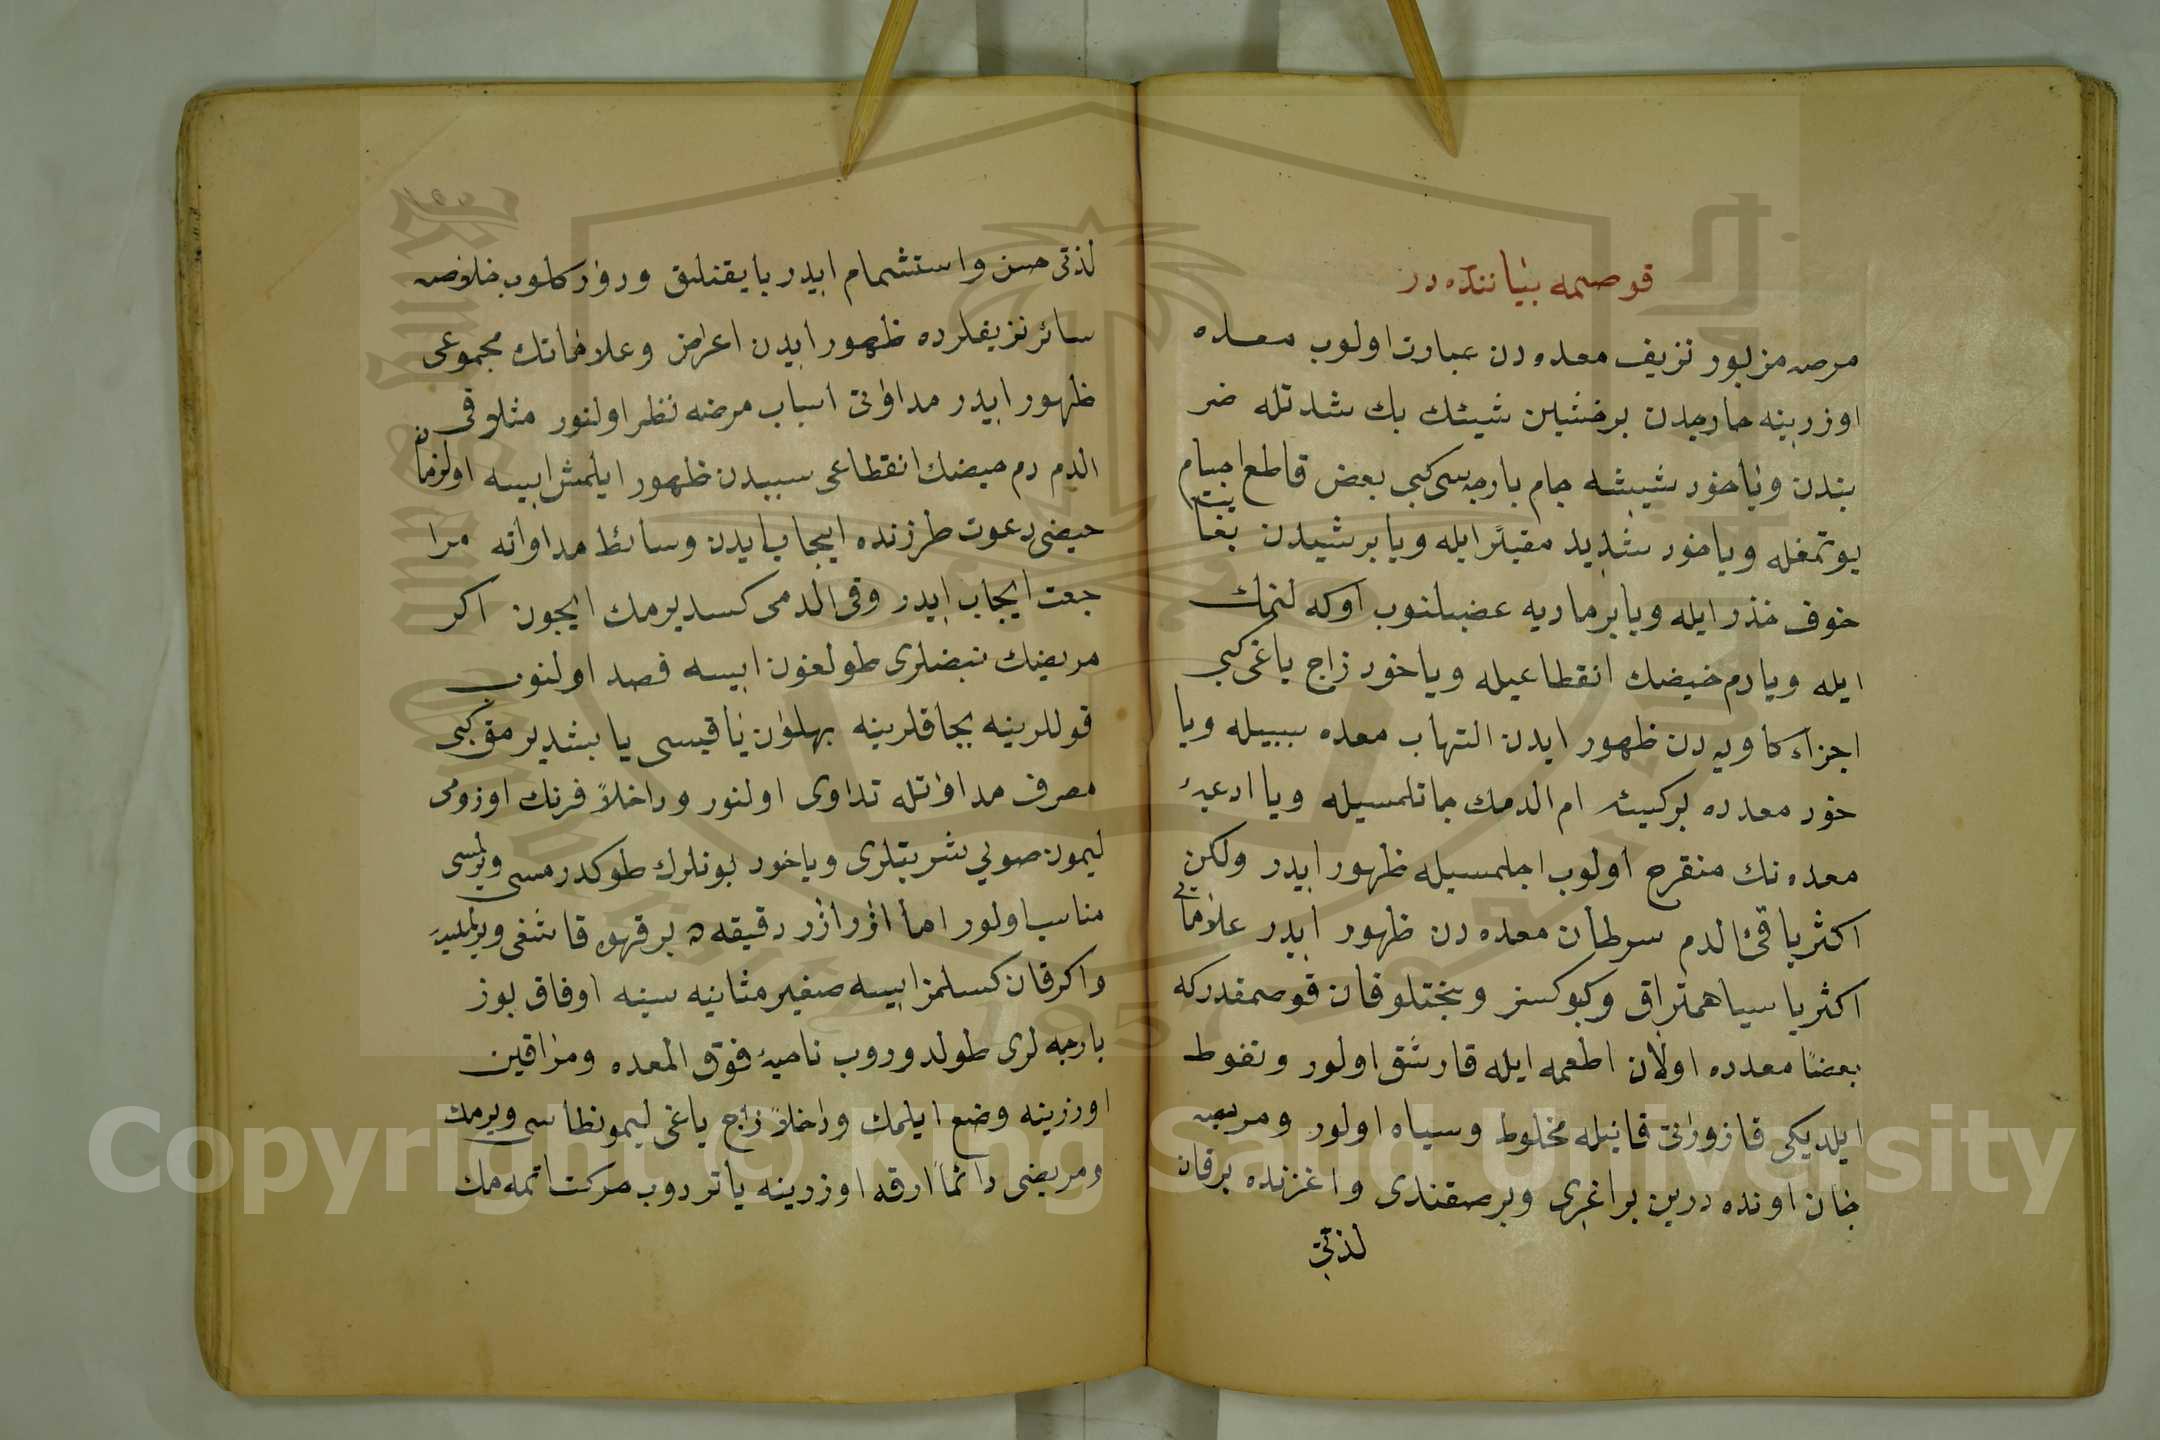 قوصمه بیاننده در
مرض مزبور نزیف معده دن عبارت اولوب معده
اوزرینه خارجدن برخشین شیئك بك شدتله ضر
بندن ویاخود شیشه جام پارچه سی كبی بعض قاطع اجسام
یوتمغله ویاخود شدید مقیئر ایله ویا برشیدن بغتاً
خوف حذر ایله ویا برماریه غضبلنوب اوكه لنمك
ایله ویا دم حیضك انقطاعیله ویاخود زاج یاغی كبی
اجزاء كاویه دن ظهور ایدن التهاب معده سببیله ویا
خود معدده بركیسه ام الدمك چاتلمسیله ویا ادعیهٔ
معده نك منقرح اولوب اچلمسیله ظهور ایدر ولكن
اكثریا قئ الدم سرطان معده دن ظهور ایدر علاماتی
اكثریا سیاهمتراق وكپوكسز وپختلو قان قوصمقدركه
بعضاً معدده اولان اطعمه ایله قارشق اولور وتغوط
ایلدیكی قازوراتی قانیله مخلوط وسیاه اولور ومریض
خان اونده درین براغری وبرصقندی واغزنده برقان
لذتی
لذتی حس واستشمام ایدر بایقنلق ودوار كلوب خلاصه
سائر نزیفلرده ظهور ایدن اعراض وعلاماتك مجموعی
ظهور ایدر مداواتی اسباب مرضه نظر اولنور مثلا قئ
الدم دم حیضك انقطاعی سببدن ظهور ایلمش ایسه اولزمان
حیضی دعوت طرزنده ایجاب ایدن وسائط مداواته مرا
جعت ایجاب ایدر وقئ الدمی كسدیرمك ایچون اكر
مریضك نبضلری طولغون ایسه فصد اولنوب
قوللرینه بجاقلرینه بهلوان یاقیسی یاپشدیرمق كبی
مصرف مداواتله تداوی اولنور وداخلاً فرنك اوزومی
لیمون صویی شربتلری ویاخود بونلرك طوكدرمسی ویرلمسی
مناسب اولور اما ازر ازر دقیقه ده برقهوه قاشغی ویرلملیدر
واكر قان كسلمز ایسه صغیر مثانیه سینه اوفاق بوز
پارچه لری طولدوروب ناحیهٔ فوق المعده ومراقین
اوزرینه وضع ایلمك وداخلاً زاج یاغی لیموناطاسی ویرمك
ومریضی دائماً ارقه اوزرینه یاتردوب حركت اتمه مك
Copyright © King Saud University
1957